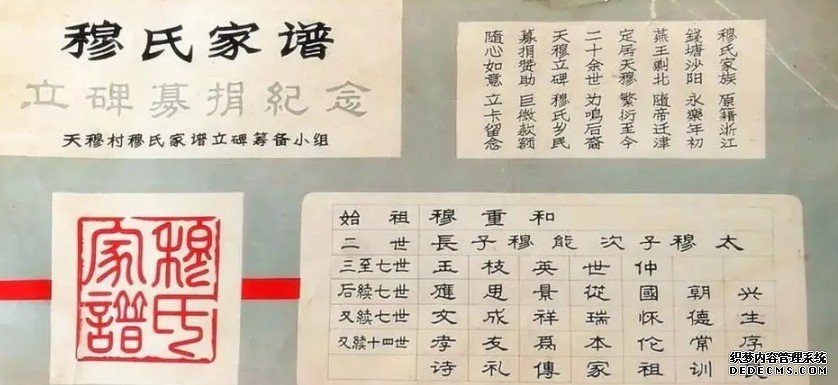 穆氏家谱
立碑募捐紀念
天穆村穆氏家谱立碑筹备小组
穆氏家族 原籍浙江
錢塘沙阳 永樂年初
燕王剿北 随帝迁津
定居天穆 繁衍至今
二十余世 为鳴后裔
天穆立碑 穆氏乡民
募捐赞助 巨微款额
隨心如意 立卡留念
穆氏家譜
始祖 穆重和
二世 長子穆能 次子穆太
三至七世 玉枝英世仲
后续七世 應思景從國朝兴
又续七世 文成祥瑞怀德生
又续十四世 孝友爲本伦常序
诗礼傳家祖训
织梦内容管理系统
DEDECMS.COM